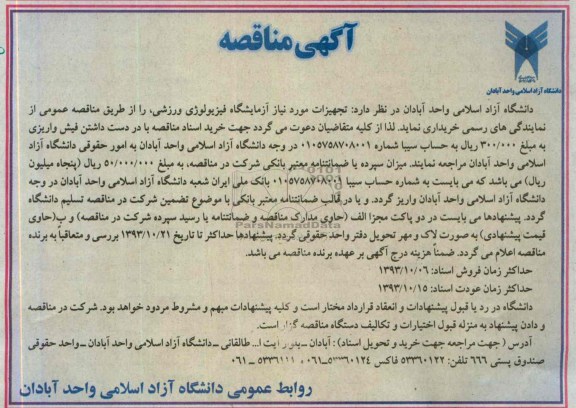 آگهی مناقصه
دانشگاه آزاد اسلامی واحد آبادان
دانشگاه آزاد اسلامی واحد آبادان در نظر دارد: تجهیزات مورد نیاز آزمایشگاه فیزیولوژی ورزشی، را از طریق مناقصه عمومی از
نمایندگی های رسمی خریداری نماید. لذا از کلیه متقاضیان دعوت می گردد جهت خرید اسناد مناقصه با در دست داشتن فیش واریزی
به مبلغ ۳۰۰/۰۰۰ ریال به حساب سیبا شماره ۰۱۰۵۷۵۸۷۰۸۰۰۱ در وجه دانشگاه آزاد اسلامی واحد آبادان به امور حقوقی دانشگاه آزاد
اسلامی واحد آبادان مراجعه نمایند. میزان سپرده یا ضمانتنامه معتبر بانکی شرکت در مناقصه، به مبلغ ۵۰/۰۰۰/۰۰۰ ریال (پنجاه میلیون
ریال) می باشد که می بایست به شماره حساب سیبا ۰۱۰۵۷۵۸۷۰۸۰۰۱ بانک ملی ایران شعبه دانشگاه آزاد اسلامی واحد آبادان در وجه
دانشگاه آزاد اسلامی واحد آبادان واریز گردد. و یا در قالب ضمانتنامه معتبر بانکی با موضوع تضمین شرکت در مناقصه تسلیم دانشگاه
گردد. پیشنهادها می بایست در دو پاکت مجزا الف (حاوی مدارک مناقصه و ضمانتنامه یا رسید سپرده شرکت در مناقصه) و ب(حاوی
قیمت پیشنهادی) به صورت لاک و مهر تحویل دفتر واحد حقوقی گردد. پیشنهادها حداکثر تا تاریخ ۱۳۹۳/۱۰/۲۱ بررسی و متعاقباً به برنده
مناقصه اعلام می گردد. ضمناً هزینه درج آگهی بر عهده برنده مناقصه می باشد.
ParsNamadData
حداکثر زمان فروش اسناد: ۱۳۹۳/۱۰/۰۶
حداکثر زمان عودت اسناد: ۱۳۹۳/۱۰/۱۵
دانشگاه در رد یا قبول پیشنهادات و انعقاد قرارداد مختار است و کلیه پیشنهادات مبهم و مشروط مردود خواهد بود. شرکت در مناقصه
و دادن پیشنهاد به منزله قبول اختیارات و تکالیف دستگاه مناقصه گزار است.
آدرس ( جهت مراجعه جهت خرید و تحویل اسناد) : آبادان ـ طالقانی ـ دانشگاه آزاد اسلامی واحد آبادان ـ واحد حقوقی
صندوق پستی ۶۶۶ تلفن: ۵۳۳۶۰۱۲۲ فاکس ۵۳۳۶۰۱۲۴ـ۰۶۱
روابط عمومی دانشگاه آزاد اسلامی واحد آبادان